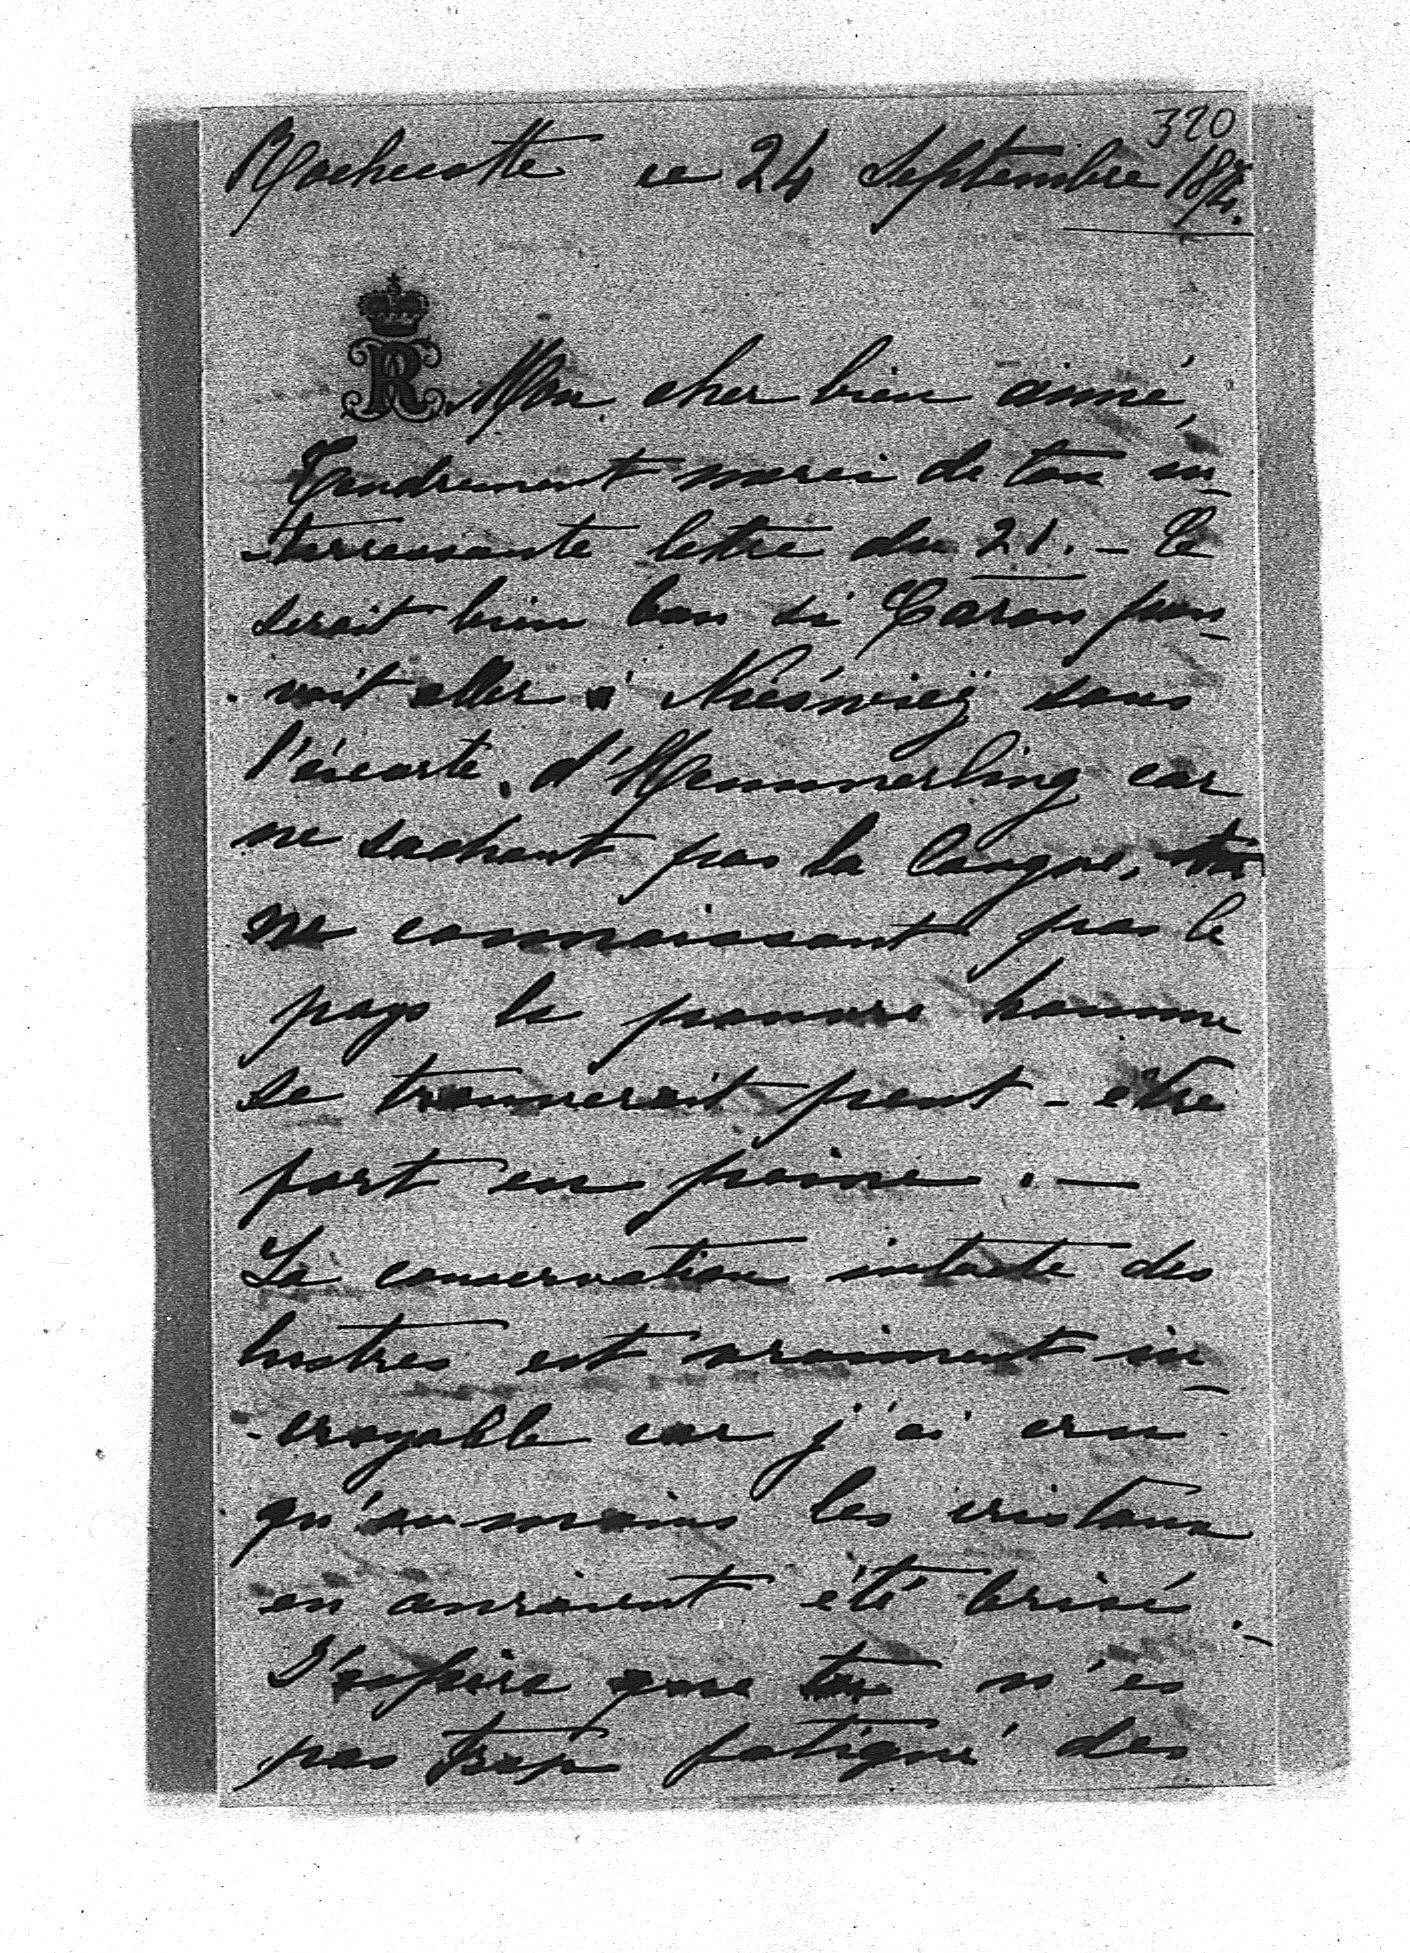 320
Rochecotte ce 24 Septembre
R Mon cher bien aimé,
Tendrement merci de ton in-
-terressante lettre du 21. - Ce
serait bien bon si Caron pou-
-vait aller à Nieświeź sous
l'éscorte d'Hemmerling car
ne sachant pas la langue,
ne connaissant pas le
pays le pauvre homme
se trouverait peut-être
fort en peine. -
La conservation intacte des
lustres est vraiment in-
-croyable car j'ai cru
qu'au moins les cristaux
en auraient été brisés. -
J'espère que tu n'es
pas trop fatigué des